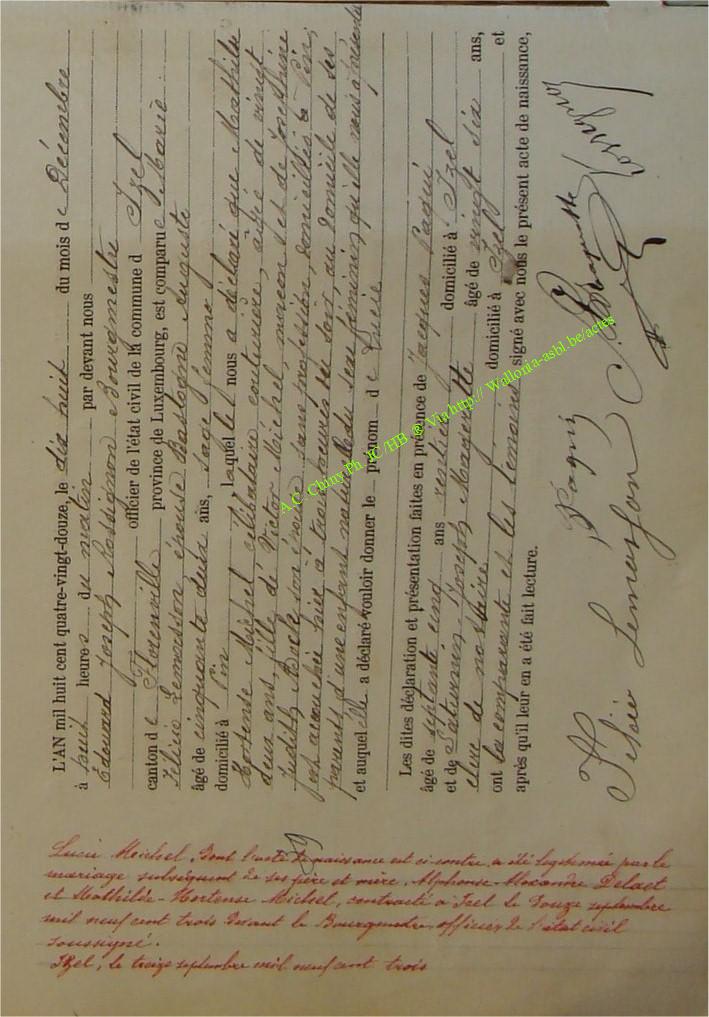 L'AN mil huit cent quatre-vingt-douze, le dix huit du mois de Décembre
à huit heures du matin par devant nous
Edouard Joseph Rossignon Bourgmestre
officier de l'état civil de la commune d Izel
canton de Florenville province de Luxembourg, est comparue Marie
Félicie Lemasson épouse Bastogne Auguste
âgé de cinquante deux ans, sage femme
domicilié à Pin laquelle nous a déclaré que Mathilde
Hortense Michel célibataire couturière, âgée de vingt
deux ans, fille de Victor Michel, maçon et de Joséphine
Judith son épouse sans profession, domiciliés à Pin,
est accouchée hier à trois heures du soir, au domicile de ses
parents d'une enfant naturelle du sexe féminin qu'elle nous a présentée
et auquel elle a déclaré vouloir donner le prénom de Lucie
Les dites déclaration et présentation faites en présence de Jacques Paquí
âgé de septante cinq ans rentier domicilié à Izel
et de Saturnin-Joseph Magerotte âgé de vingt six ans,
clerc de notaire domicilié à Izel et
ont la comparante et les témoins signé avec nous le présent acte de naissance,
après qu'il leur en a été fait lecture.
Paquí S. Magerotte Rossignon
Félicie Lemasson
Lucie Michel, dont l'acte de naissance est ci-contre a été légitimée par le
mariage subséquent de ses père et mère, Alphonse-Alexandre Delaet
et Mathilde-Hortense Michel, contracté à Izel le douze septembre
mil neuf cent trois devant le Bourgmestre, officier de l'état civil
soussigné.
Izel, le treize septembre mil neuf cent trois
A.C. Chiny Ph JC/HB @ Via http:// Wallonia-asbl.be/actes